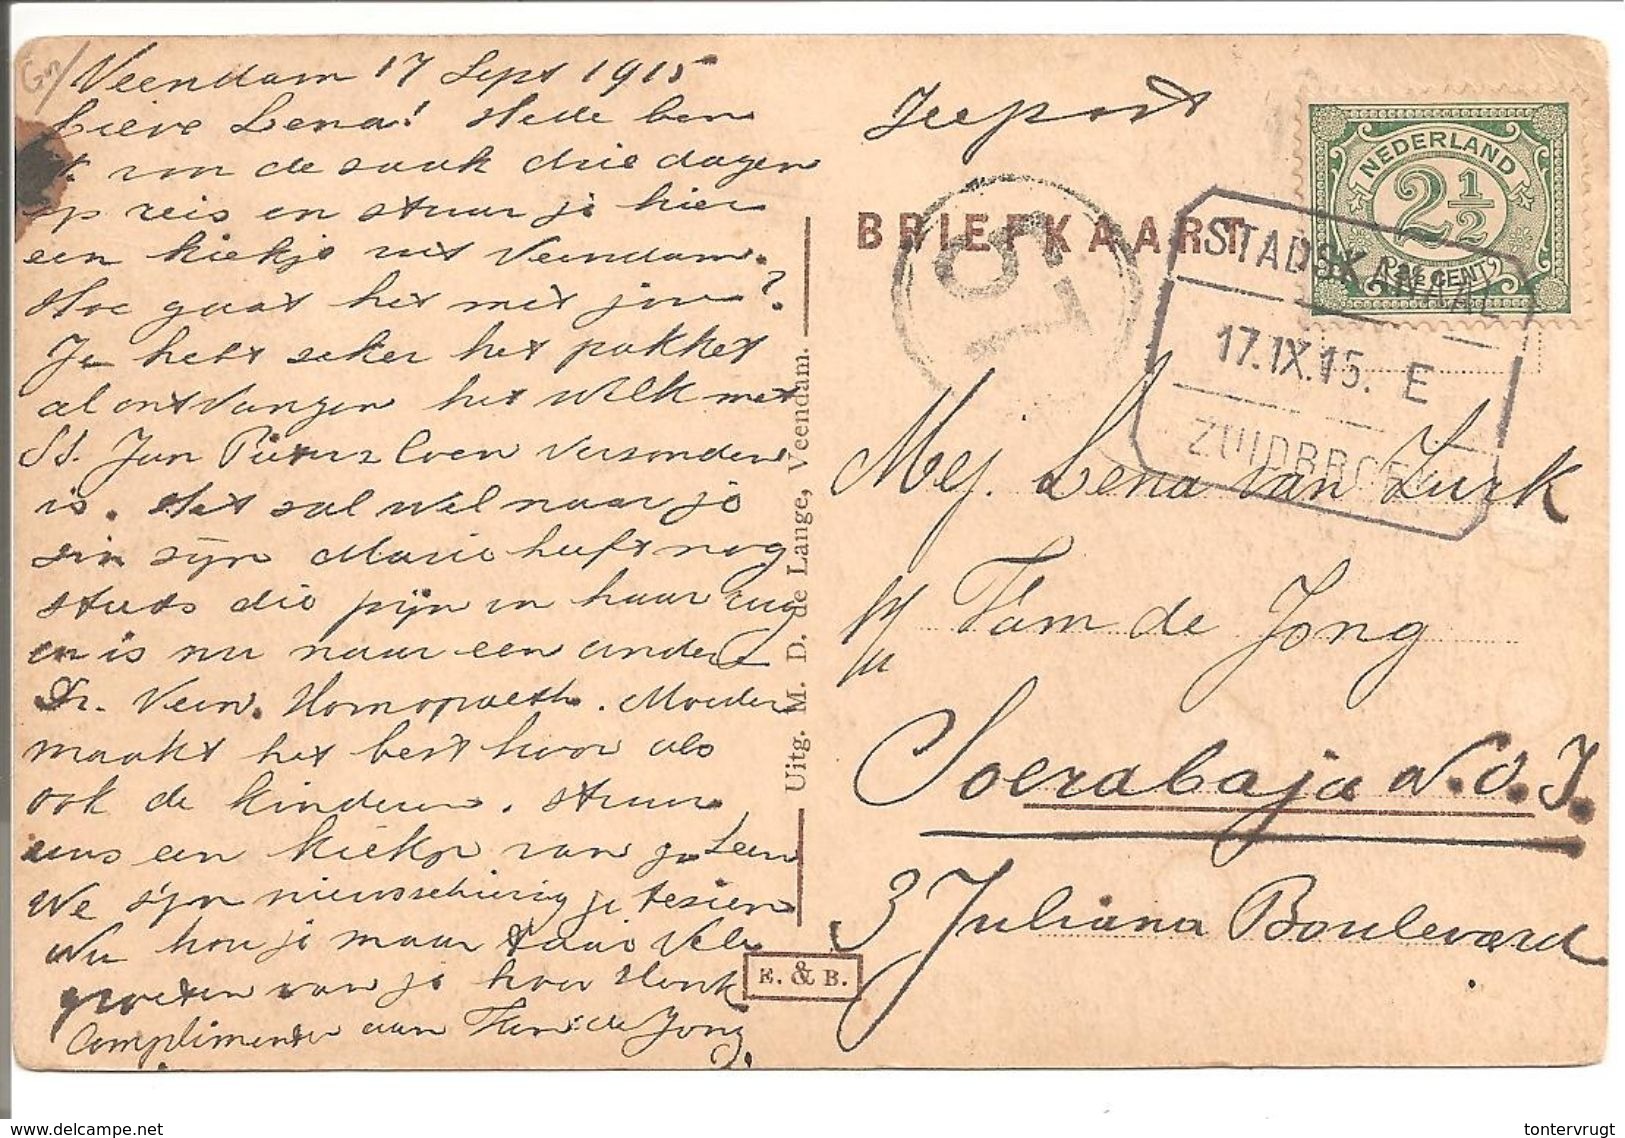 Veendam 17 Sept 1915
Lieve Lena! Hede ben
ik von de zaak drie dagen
op reis en stuur je hier
een kiekje uit Veendam.
Hoe gaat het met jou?
Je hebt zeker het pakket
al ontvangen het welk met
SS. Jan Pieters Coen verzonden
is. Het zal wel naar je
zin zijn Marie heeft nog
steeds die pijn in haar rug
en is nu naar een andere
Dr. Veen. Homopaeth. Moeder
maakt het best hoor als
ook de kinderen. Stuur
ons een kiekje van je Leen
We zijn nieuwschierig je te zien
Nu hou je maar taai Vele
groeten van je broer Henk
Complimenten aan Fam: de Jong.
Uitg. M. D. de Lange, Veendam.
E. & B.
Zeepost
BRIEFKAART
NEDERLAND
2½
CENT
STADSKANAAL
17.IX.15. E
ZUIDBROEK
Mej. Lena van Zurk
Fam de Jong
Soerabaja N.O.I.
3 Juliana Boulevard
delcampe.net
tontervrugt